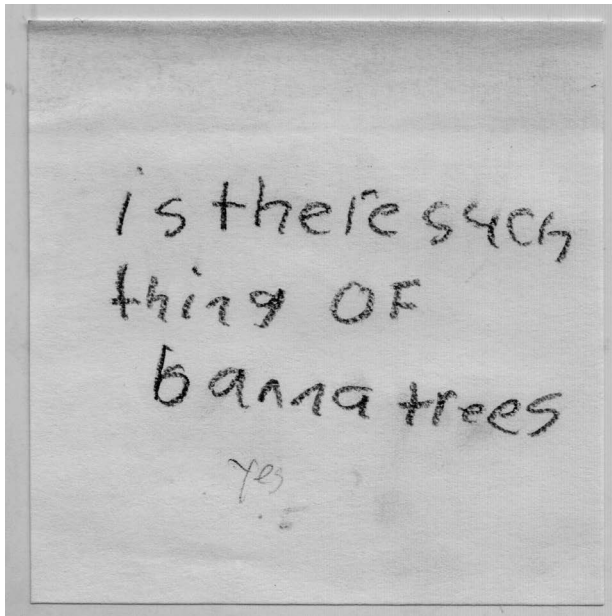 is there such
thing OF
banna trees
yes